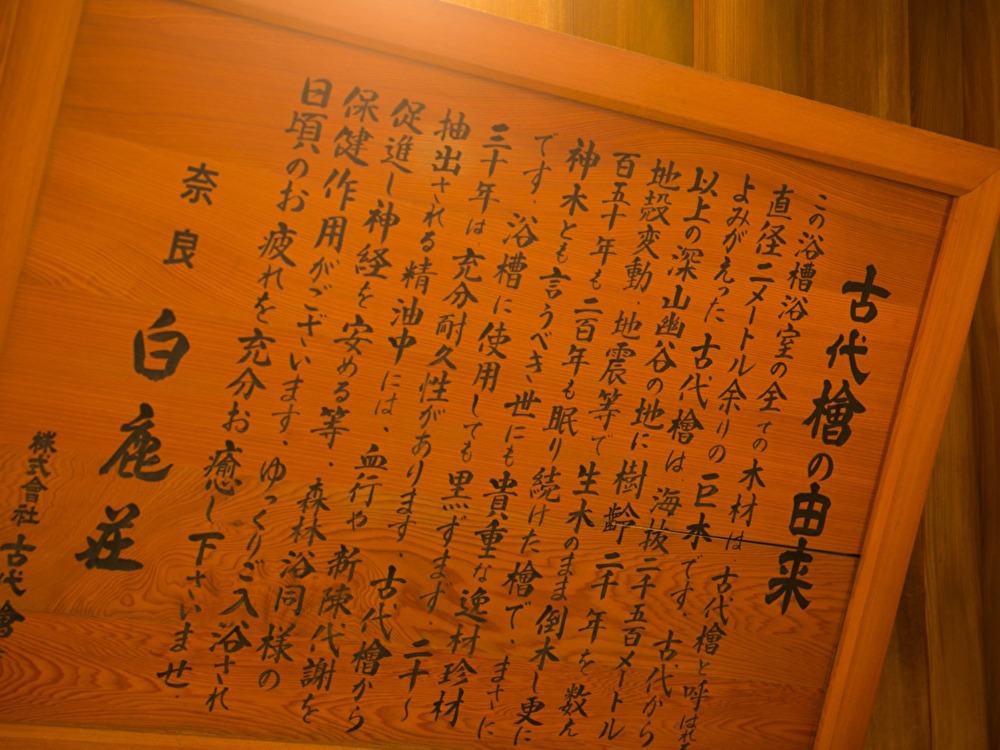 古代檜の由来
この浴槽浴室の全ての木材は古代檜と呼ばれ
直径二メートル余りの巨木です。古代から
よみがえった古代檜は、海抜二千五百メートル
以上の深山幽谷の地に樹齢二千年を数え
地殻変動、地震等で生木のまま倒木し更に
百五十年も二百年も眠り続けた檜で、まさに
神木とも言うべき世にも貴重な逸材珍材
です。浴槽に使用しても黒ずまず、二十〜
三十年は、充分耐久性があります。古代檜から
抽出される精油中には、血行や新陳代謝を
促進し神経を安める等、森林浴同様の
保健作用がございます。ゆっくりご入浴され
日頃のお疲れを充分お癒し下さいませ
奈良 白鹿荘
株式會社 古代檜